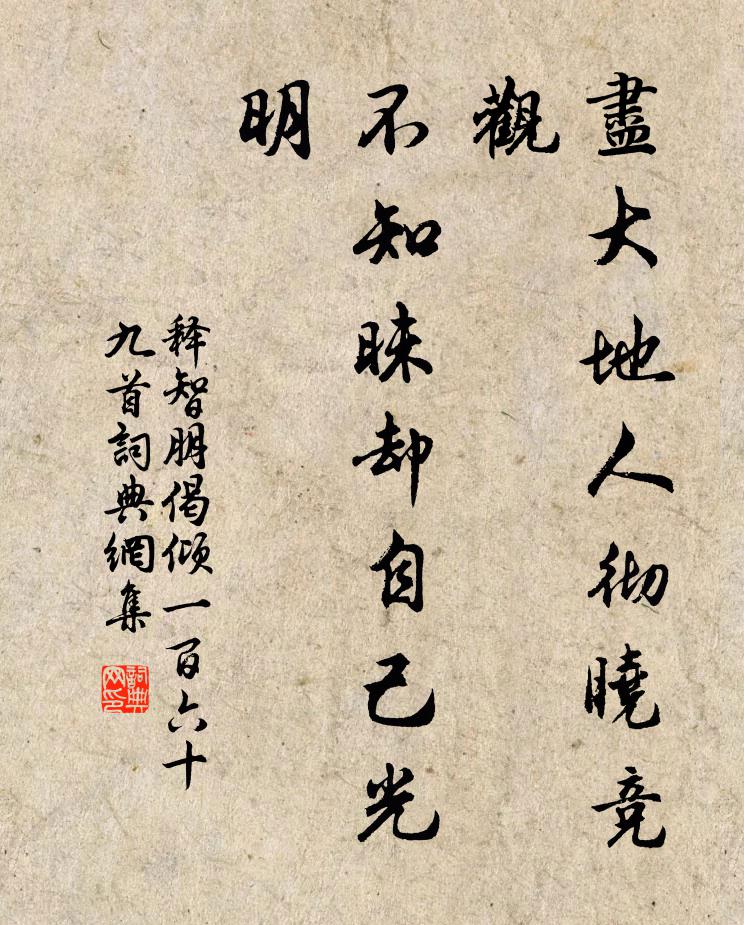 盡大地人彻曉竞
觀
不知昧却自己光
明
释智朋偈倾一百六十
九首詞典網集
詞典
网印